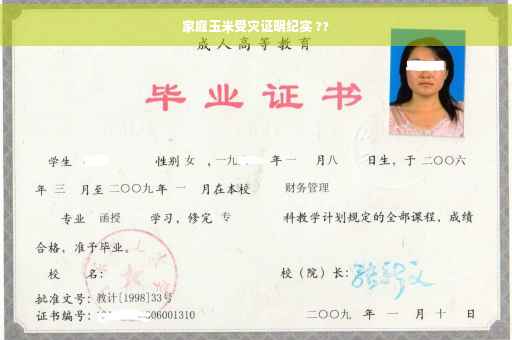 家庭玉米受灾证明纪实 ??
成人高等教育
毕业证书
学生 性别 女 ，一九 年 一 月八 日生，于 二〇〇六
年 三 月至 二〇〇九 年 一 月在本校 财务管理
专业 函授 学习，修完 专 科教学计划规定的全部课程，成绩
合格，准予毕业。
校 名： 校（院）长：
批准文号：教计[1998]33号
证书编号： 06001310 二〇〇九 年 一 月 十 日